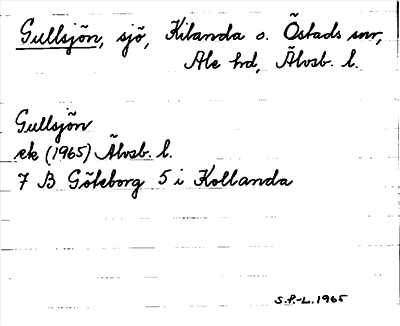 Gullsjön, sjö, Kilanda o. Östads snr,
Ale hd, Älvsb. l.
Gullsjön
ek (1965) Älvsb. l.
7 B Göteborg 5 i Kollanda
S.P.-L. 1965